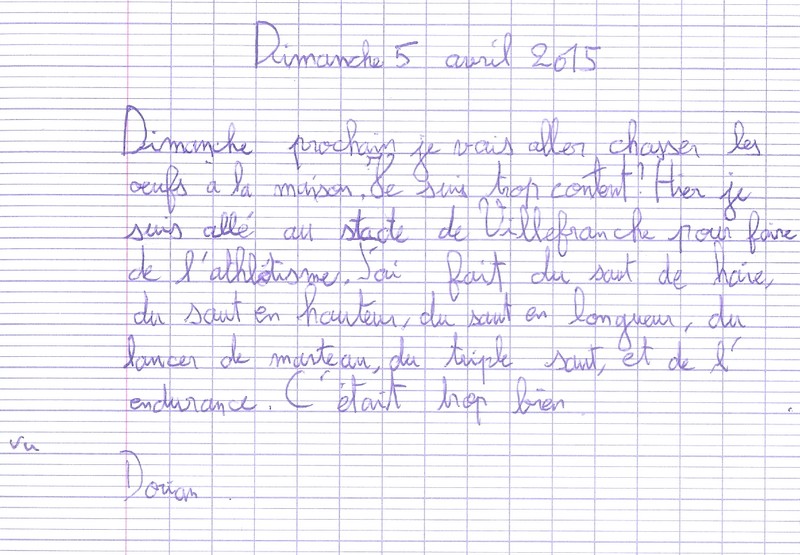 Dimanche 5 avril 2015
Dimanche prochain je vais aller chasser les
oeufs à la maison. Je suis trop content! Hier je
suis allé au stade de Villefranche pour faire
de l'athlétisme. J'ai fait du saut de haie,
du saut en hauteur, du saut en longueur, du
lancer de marteau, du triple saut, et de l'
endurance. C'était trop bien
vu
Dorian.